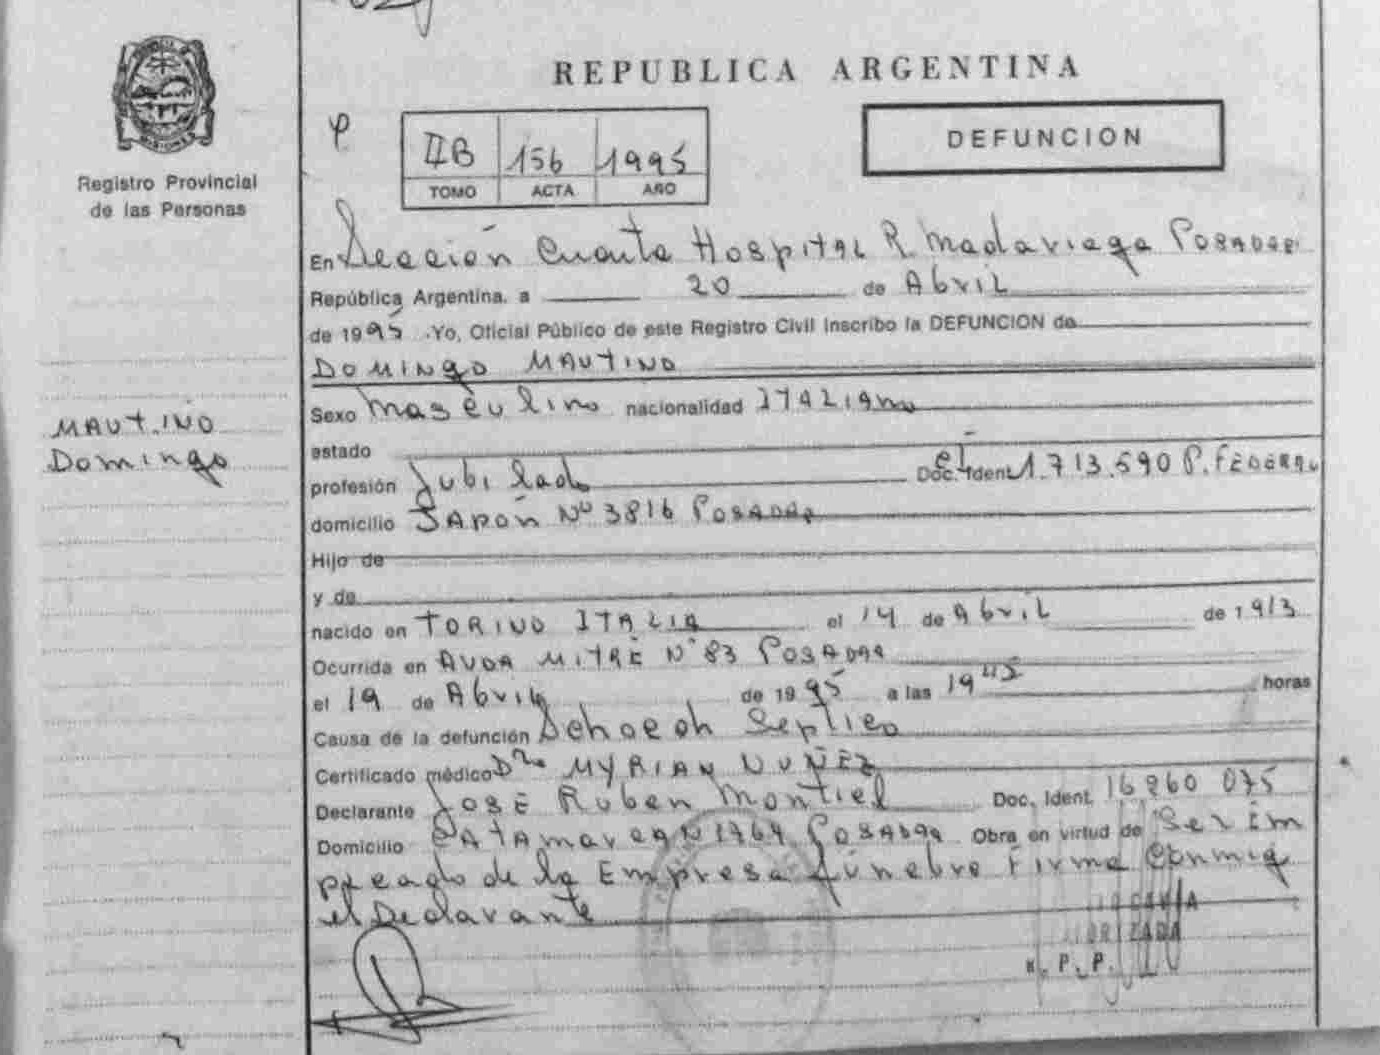 REPUBLICA ARGENTINA
MISIONES
Registro Provincial
de las Personas
DEFUNCION
IIB 156 1995
TOMO ACTA AÑO
En Sección Cuarta Hospital R. Madariaga Posadas
República Argentina, a 20 de Abril
de 1995 . Yo, Oficial Público de este Registro Civil Inscribo la DEFUNCION de
DOMINGO MAUTINO
MAUTINO
Domingo
Sexo Masculino nacionalidad ITALIANO
estado
profesión Jubilado Doc. Ident. CI 1.713.590 P. FEDERAL
domicilio JAPÓN Nº 3816 POSADAS
Hijo de
y de
nacido en TORINO ITALIA el 14 de Abril de 1913
Ocurrida en AVDA MITRE Nº 83 POSADAS
el 19 de Abril de 1995 a las 19 45 horas
Causa de la defunción Schoch Septico
Certificado médico Dra MYRIAN NUÑEZ
Declarante JOSÉ Ruben Montiel Doc. Ident. 16 260 075
Domicilio CATAmarca N 1764 POSAdas Obra en virtud de Ser Em
pleado de la Empresa fúnebre Firma Conmigo
el Declarante
R. P. P.